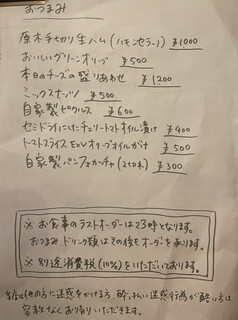 おつまみ
原木手切り生ハム(ハモンセラーノ) ¥1000
おいしいグリーンオリーブ ¥500
本日のチーズの盛りあわせ ¥1,200
ミックスナッツ ¥500
自家製ピクルス ¥600
セミドライにしたチェリートマトオイル漬け ¥400
トマトスライスExvオリーブオイルがけ ¥500
自家製パンフォカッチャ(2切れ) ¥300
※ お食事のラストオーダーは23時となります。
おつまみ、ドリンク類はその後もオーダーを承ります。
※ 別途消費税(10%)をいただいております。
当店は他の方に迷惑をかける方、酔っ払い迷惑行為が酷い方は
容赦なくお断りいただきます。